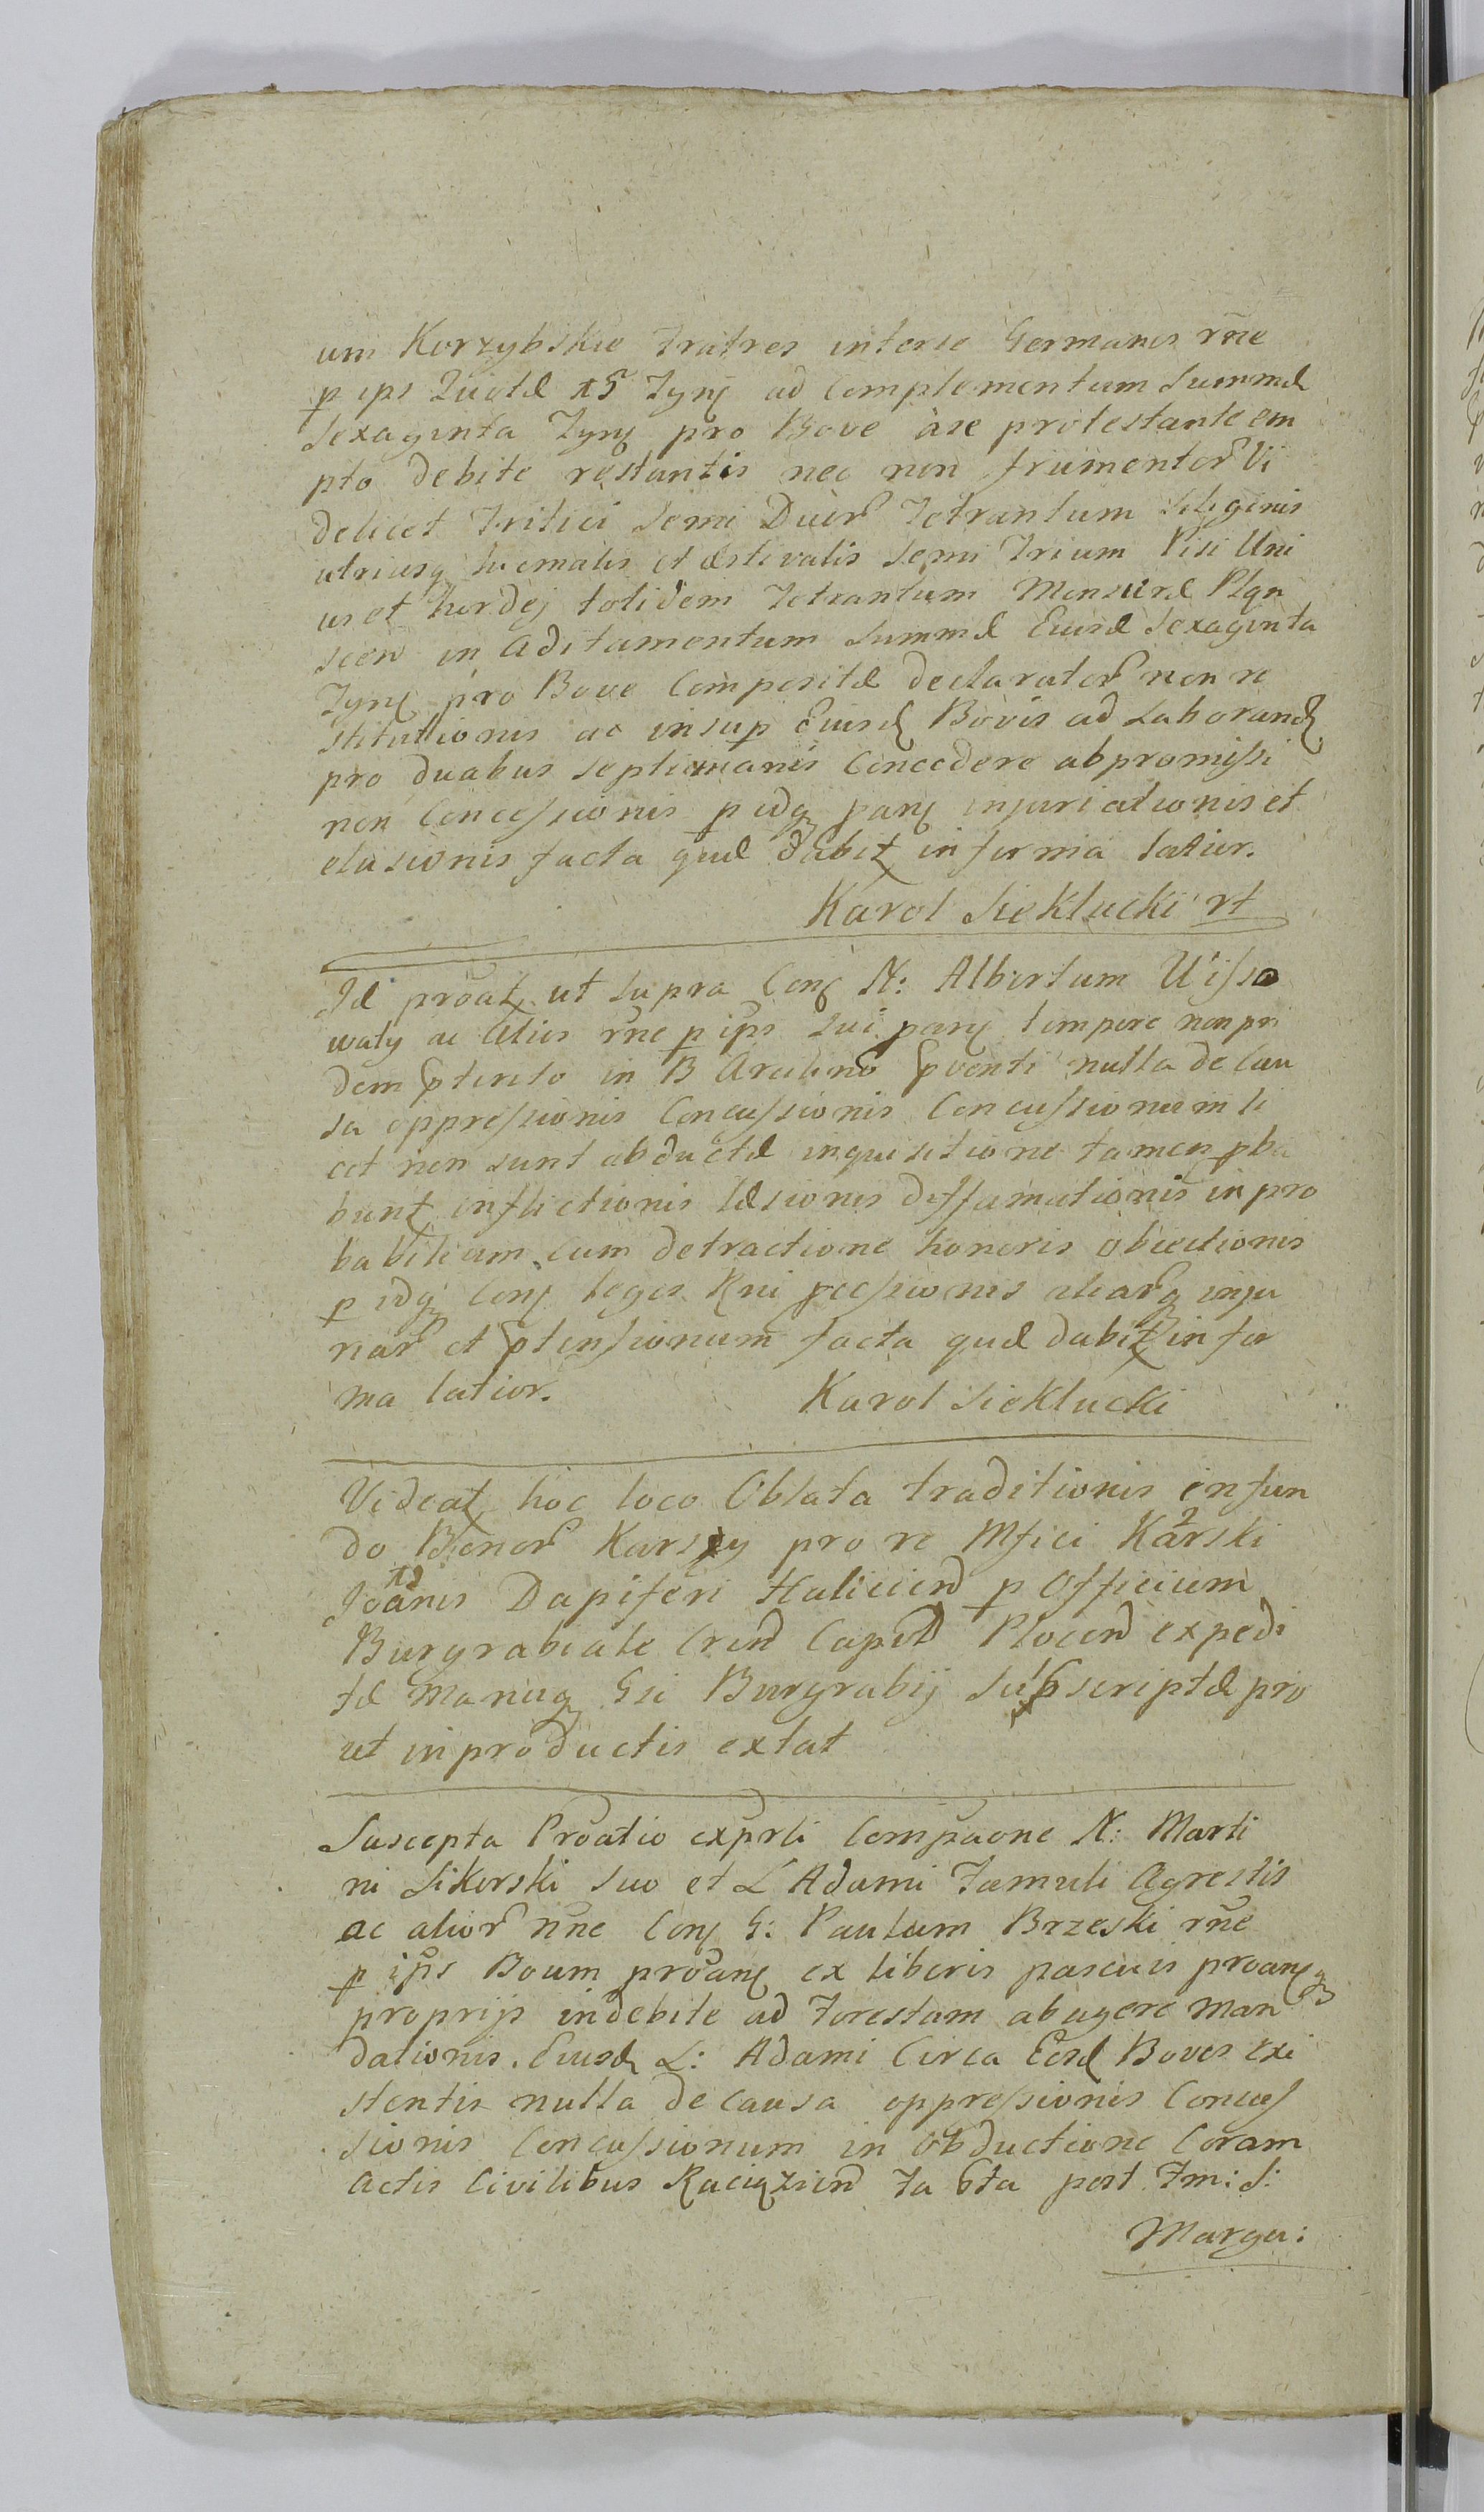 um Korzybskie Fratres inter se Germanos rñe
p ips Quotæ 15 Tynf ad Complementum Summæ
Sexaginta Tynf pro Bove a se protestante em
pto debite restantis nec non frumentor Vi
delicet Tritici Semi Duor Tetrantum Siliginis
utriusq hiemalis et æstivalis Semi Trium Pisi Uni
us et hordej totidem Tetrantum Mensuræ Plon
scen in Aditamentum Summæ Eiusd Sexaginta
Tynf pro Bove Compositæ declarator non re
stitutionis ac insup Eiusd Bovis ad Laborand
pro duabus septimanis Concedere abpromissi
non Concessionis p idq panf injuriationis et
elusionis facta quæ dabit in forma latior.
Karol Sieklucki rt
Id proat ut supra Conf N: Albertum Uisso
waty ac Alios rñe p ips Sui panf tempore non pri
dem pterito in B Aralino pventi nulla de Cau
sa oppressionis Concussionis Concussionum li
cet non sunt abductæ inquisitione tamen pba
bunt inflictionis læsionis diffamationis inpro
babilium cum detractione honoris obiectionis
p idq Conf leges Rni pcessionis aliarq inju
riar et ptensionum facta quæ dabit in for
ma latior. Karol Sieklucki
Videat hoc loco Oblata traditionis in fun
do Bonor Karszy pro re Mfici Karski
Joanis Dapiferi Halicien p Officium
Burgrabiale Cren Capit Plocen expedi
tæ Manuq Gsi Burgrabij Subscriptæ pro
ut in productis extat
Suscepta Proatio exprli Compaone N: Marti
ni Sikorski suo et L Adami Famuli Agrestis
ac alior rñe Conf G: Paulum Brzeski rñe
p ips Boum proanf ex liberis pascuis proanf
proprijs indebite ad Forestam abagere man
dationis. Eiusd L: Adami Circa Eosd Boves exi
stentis nulla de causa oppressionis Concus
sionis Concussionum in Obductione Coram
Actis Civilibus Raciązien Fa 6ta post Fm: S:
Marga: